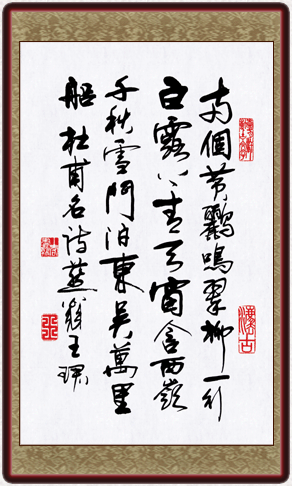 两個黄鸝鳴翠柳一行
白露上青天窗含西嶺
千秋雪門泊東吴萬里
船 杜甫名詩 王